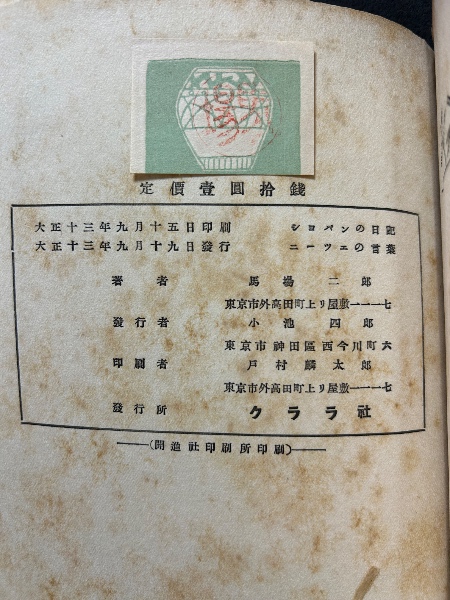 定價壹圓拾錢
大正十三年九月十五日印刷
大正十三年九月十九日發行
シヨパンの日記
ニーツエの言葉
著者 馬場二郎
東京市外高田町上リ屋敷一一一七
發行者 小池四郎
東京市神田區西今川町六
印刷者 戸村麟太郎
東京市外高田町上リ屋敷一一一七
發行所 クララ社
(開進社印刷所印刷)